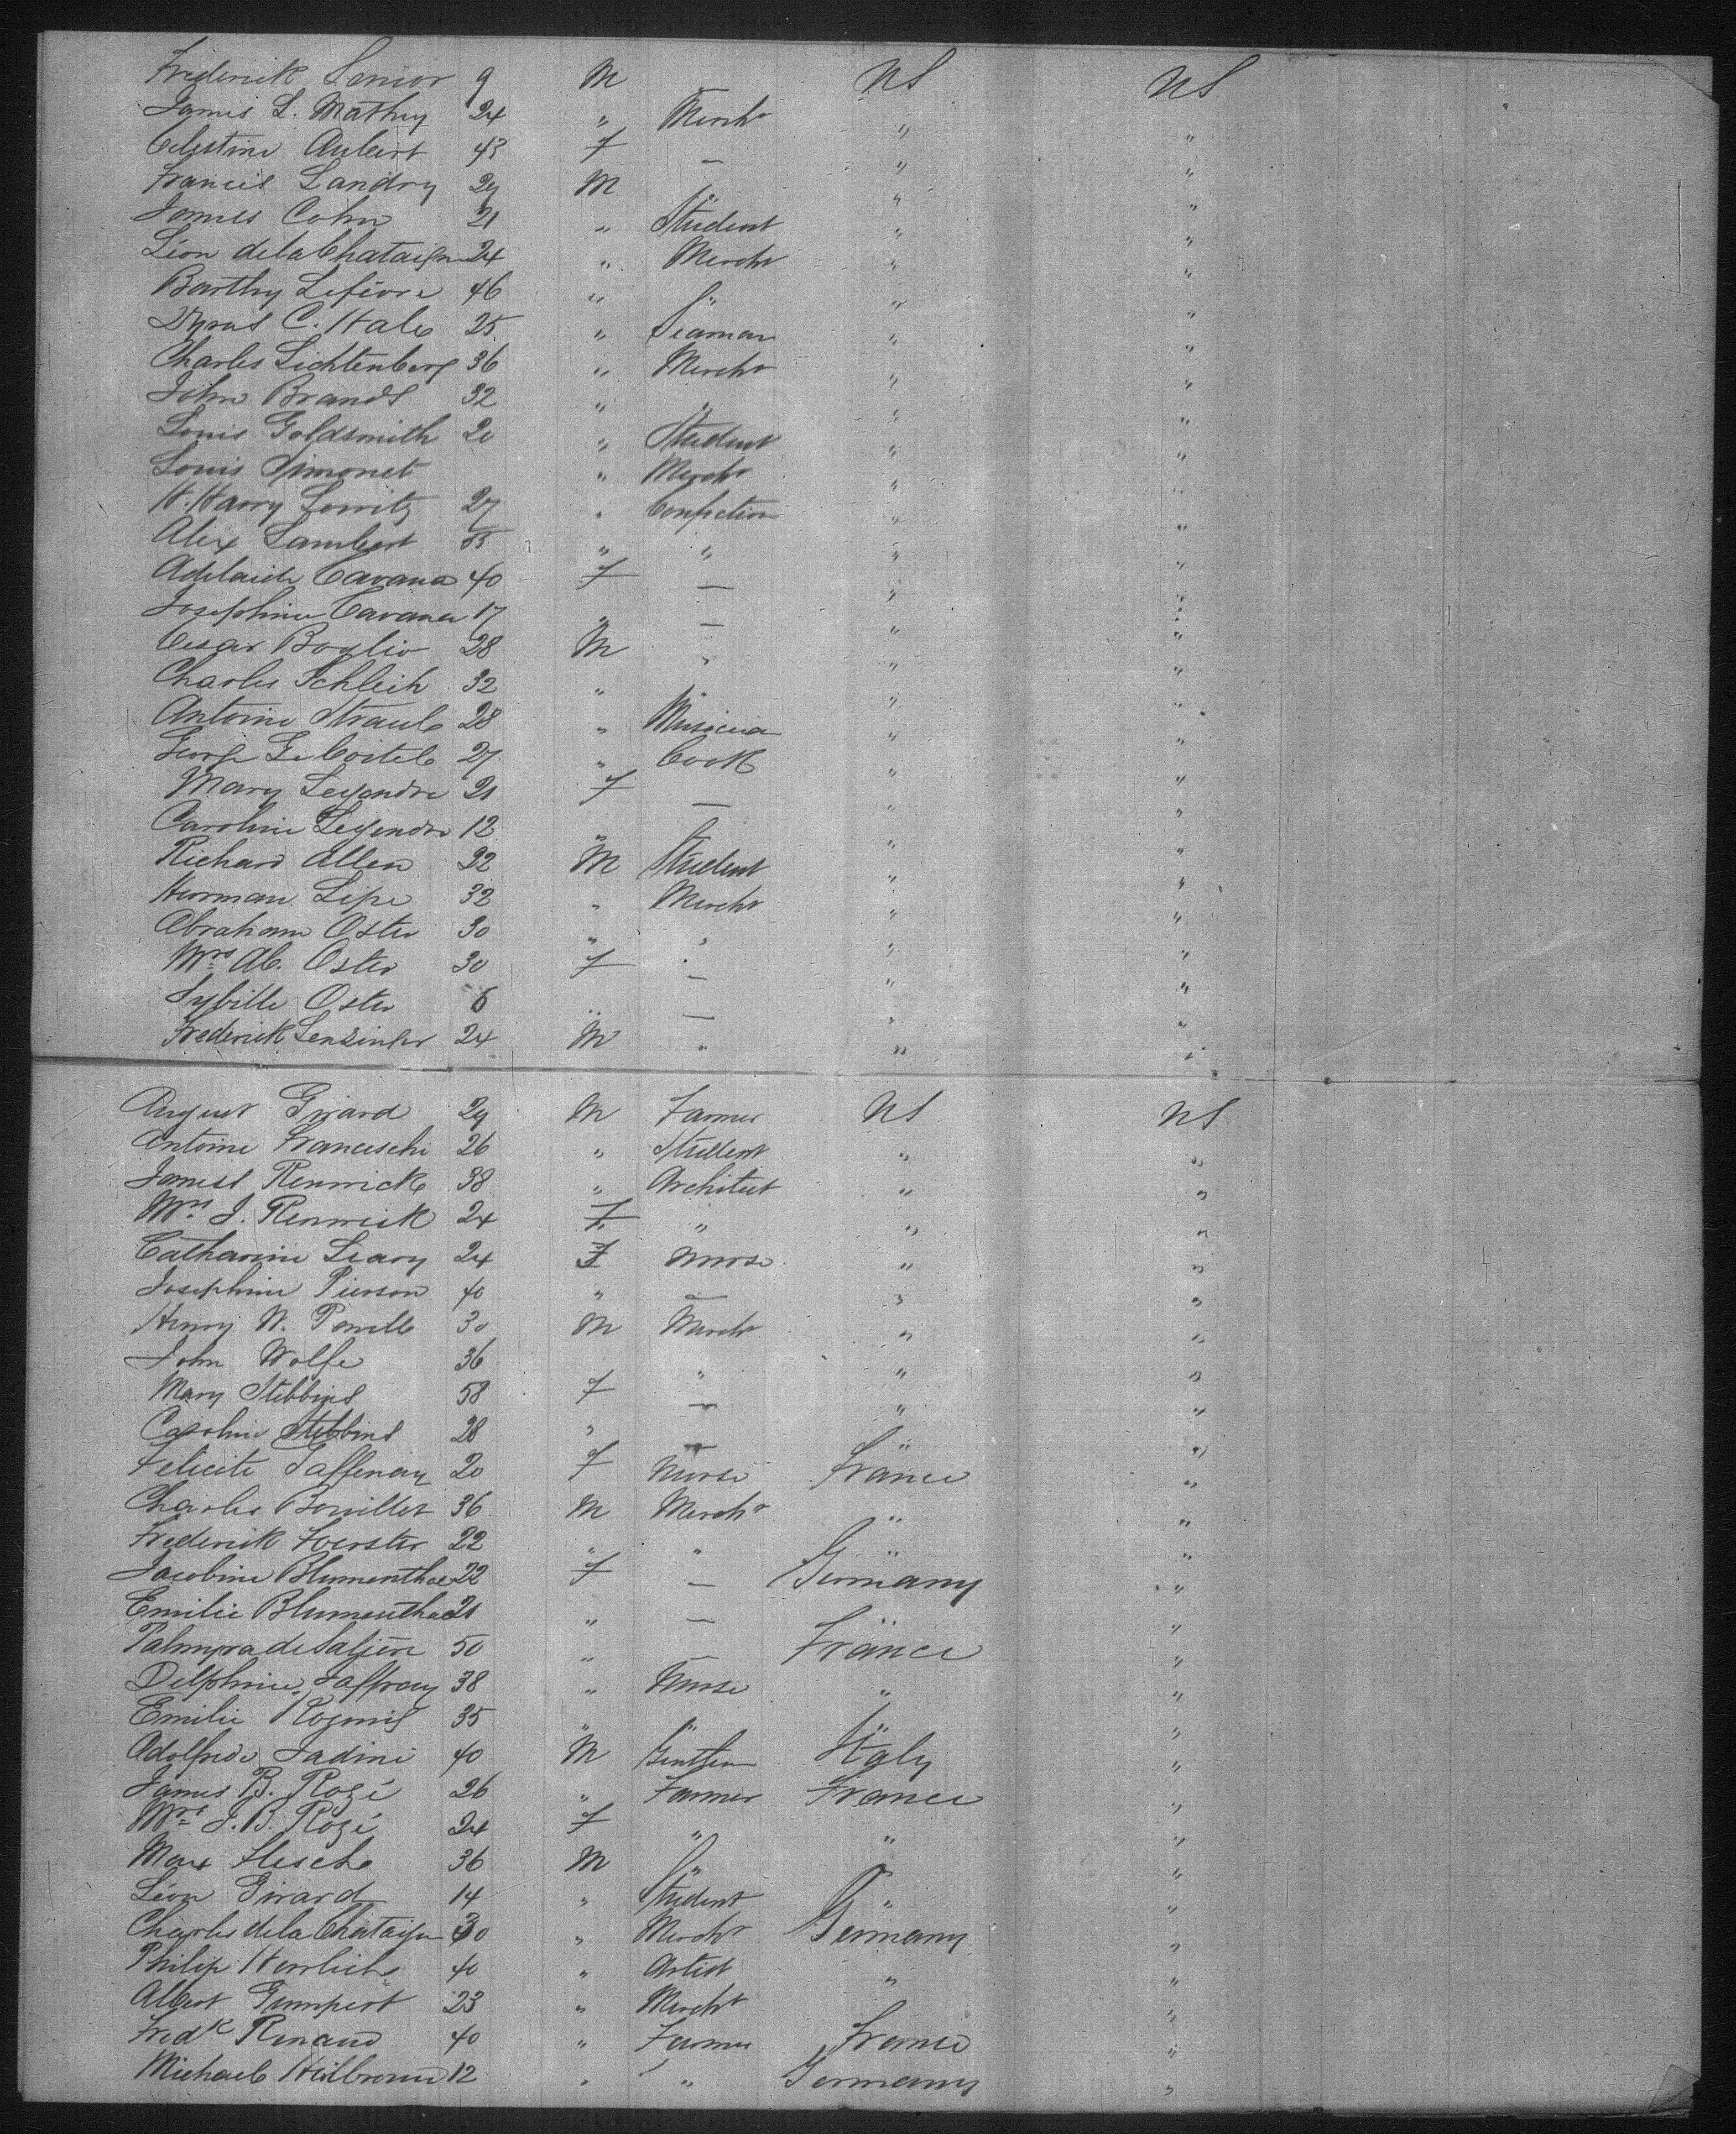 Frederick Senior 9 M US US
James L. Mathey 24 " Mercht " "
Celestine Aubert 43 F — " "
Francis Landry 29 M " " "
James Cohn 21 " Student " "
Léon de la Chataign 24 " Mercht " "
Barthy Lefèvre 46 " " " "
C. Hale 25 " Seaman " "
Charles Lichtenberg 36 " Mercht " "
John Brands 32 " " " "
Louis Goldsmith 20 " Student " "
Louis Simonet " Mercht " "
H. Harry Lewitz 27 " Confection " "
Alex Lambert " " " "
Adelaide Cavana 40 F — " "
Josephine Cavana 17 " — " "
Cesar Boglio 28 M " " "
Charles Schleich 32 " " " "
Antoine Straub 28 " Musician " "
George 27 " Cook " "
Mary Legendre 21 F — " "
Caroline Legendre 12 " " "
Richard Allen 32 M Student " "
Herman Lipe 32 " Mercht " "
Abraham Oster 30 " " " "
Mrs Ab. Oster 30 F — " "
Sybille Oster 6 " — " "
Frederick Lenzinger 24 M " " "
August Girard 29 M Farmer US US
Antoine Franceschi 26 " Student " "
James Renwick 38 " Architect " "
Mrs J. Renwick 24 F " " "
Catharine Leary 24 F Nurse " "
Josephine Pierson 40 " — " "
Henry W. Powell 30 M Mercht " "
John Wolfe 36 " " "
Mary Stebbins 58 F — " "
Caroline Stebbins 28 " — " "
Felicite Gaffenay 20 F Nurse France "
Charles Bouillet 36 M Mercht " "
Frederick Foerster 22 " " " "
Jacobine Blumenthal 22 F — Germany "
Emilie Blumenthal 21 " — "
Palmyra de Saljère 50 " — France "
Delphine Jaffray 38 " Nurse " "
Emilie 35 " " " "
Adolfredo Tadini 40 M Gentlem Italy "
James B. Rozé 26 " Farmer France "
Mrs J. B. Rozé 24 F " " "
Max Hesch 36 M " " "
Léon Girard 14 " Student " "
Charles de la Chataign 30 " Mercht Germany "
Philip Herrlich 40 " Artist " "
Albert Gumpert 23 " Mercht "
Fredk Renaud 40 " Farmer France "
Michael Heilbronn 12 " " Germany "